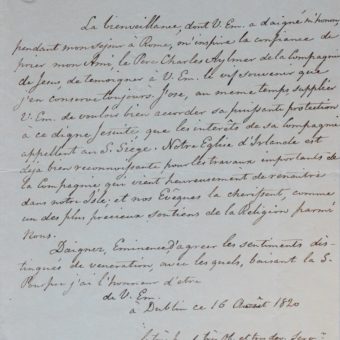 La bienveillance, dont V. Em. a daigné m'honorer
pendant mon Sejour à Rome, m'inspire la confiance de
prier mon Ami, le Père Charles Aylmer de la Compagnie
de Jesus, de temoigner à V. Em. le vif souvenir que
j'en conserve toujours. J'ose, au meme temps supplier
V. Em. de vouloir bien accorder sa puissante protection
à ce digne Jesuite, que les interêts de sa Compagnie
appellent au S. Siege. Notre Eglise d'Irlande est
déjà bien reconnoissante pour les travaux importants de
la Compagnie qui vient heureusement de renaitre
dans notre Isle; et nos Evêques la cherissent, comme
un des plus precieux soutiens de la Religion parmi
Nous.
Daignez, Eminence, d'agreer les sentiments dis-
tingués de veneration, avec lesquels, baisant la S.
Pourpre j'ai l'honneur d'etre
de V. Em.
à Dublin ce 16 Août 1820